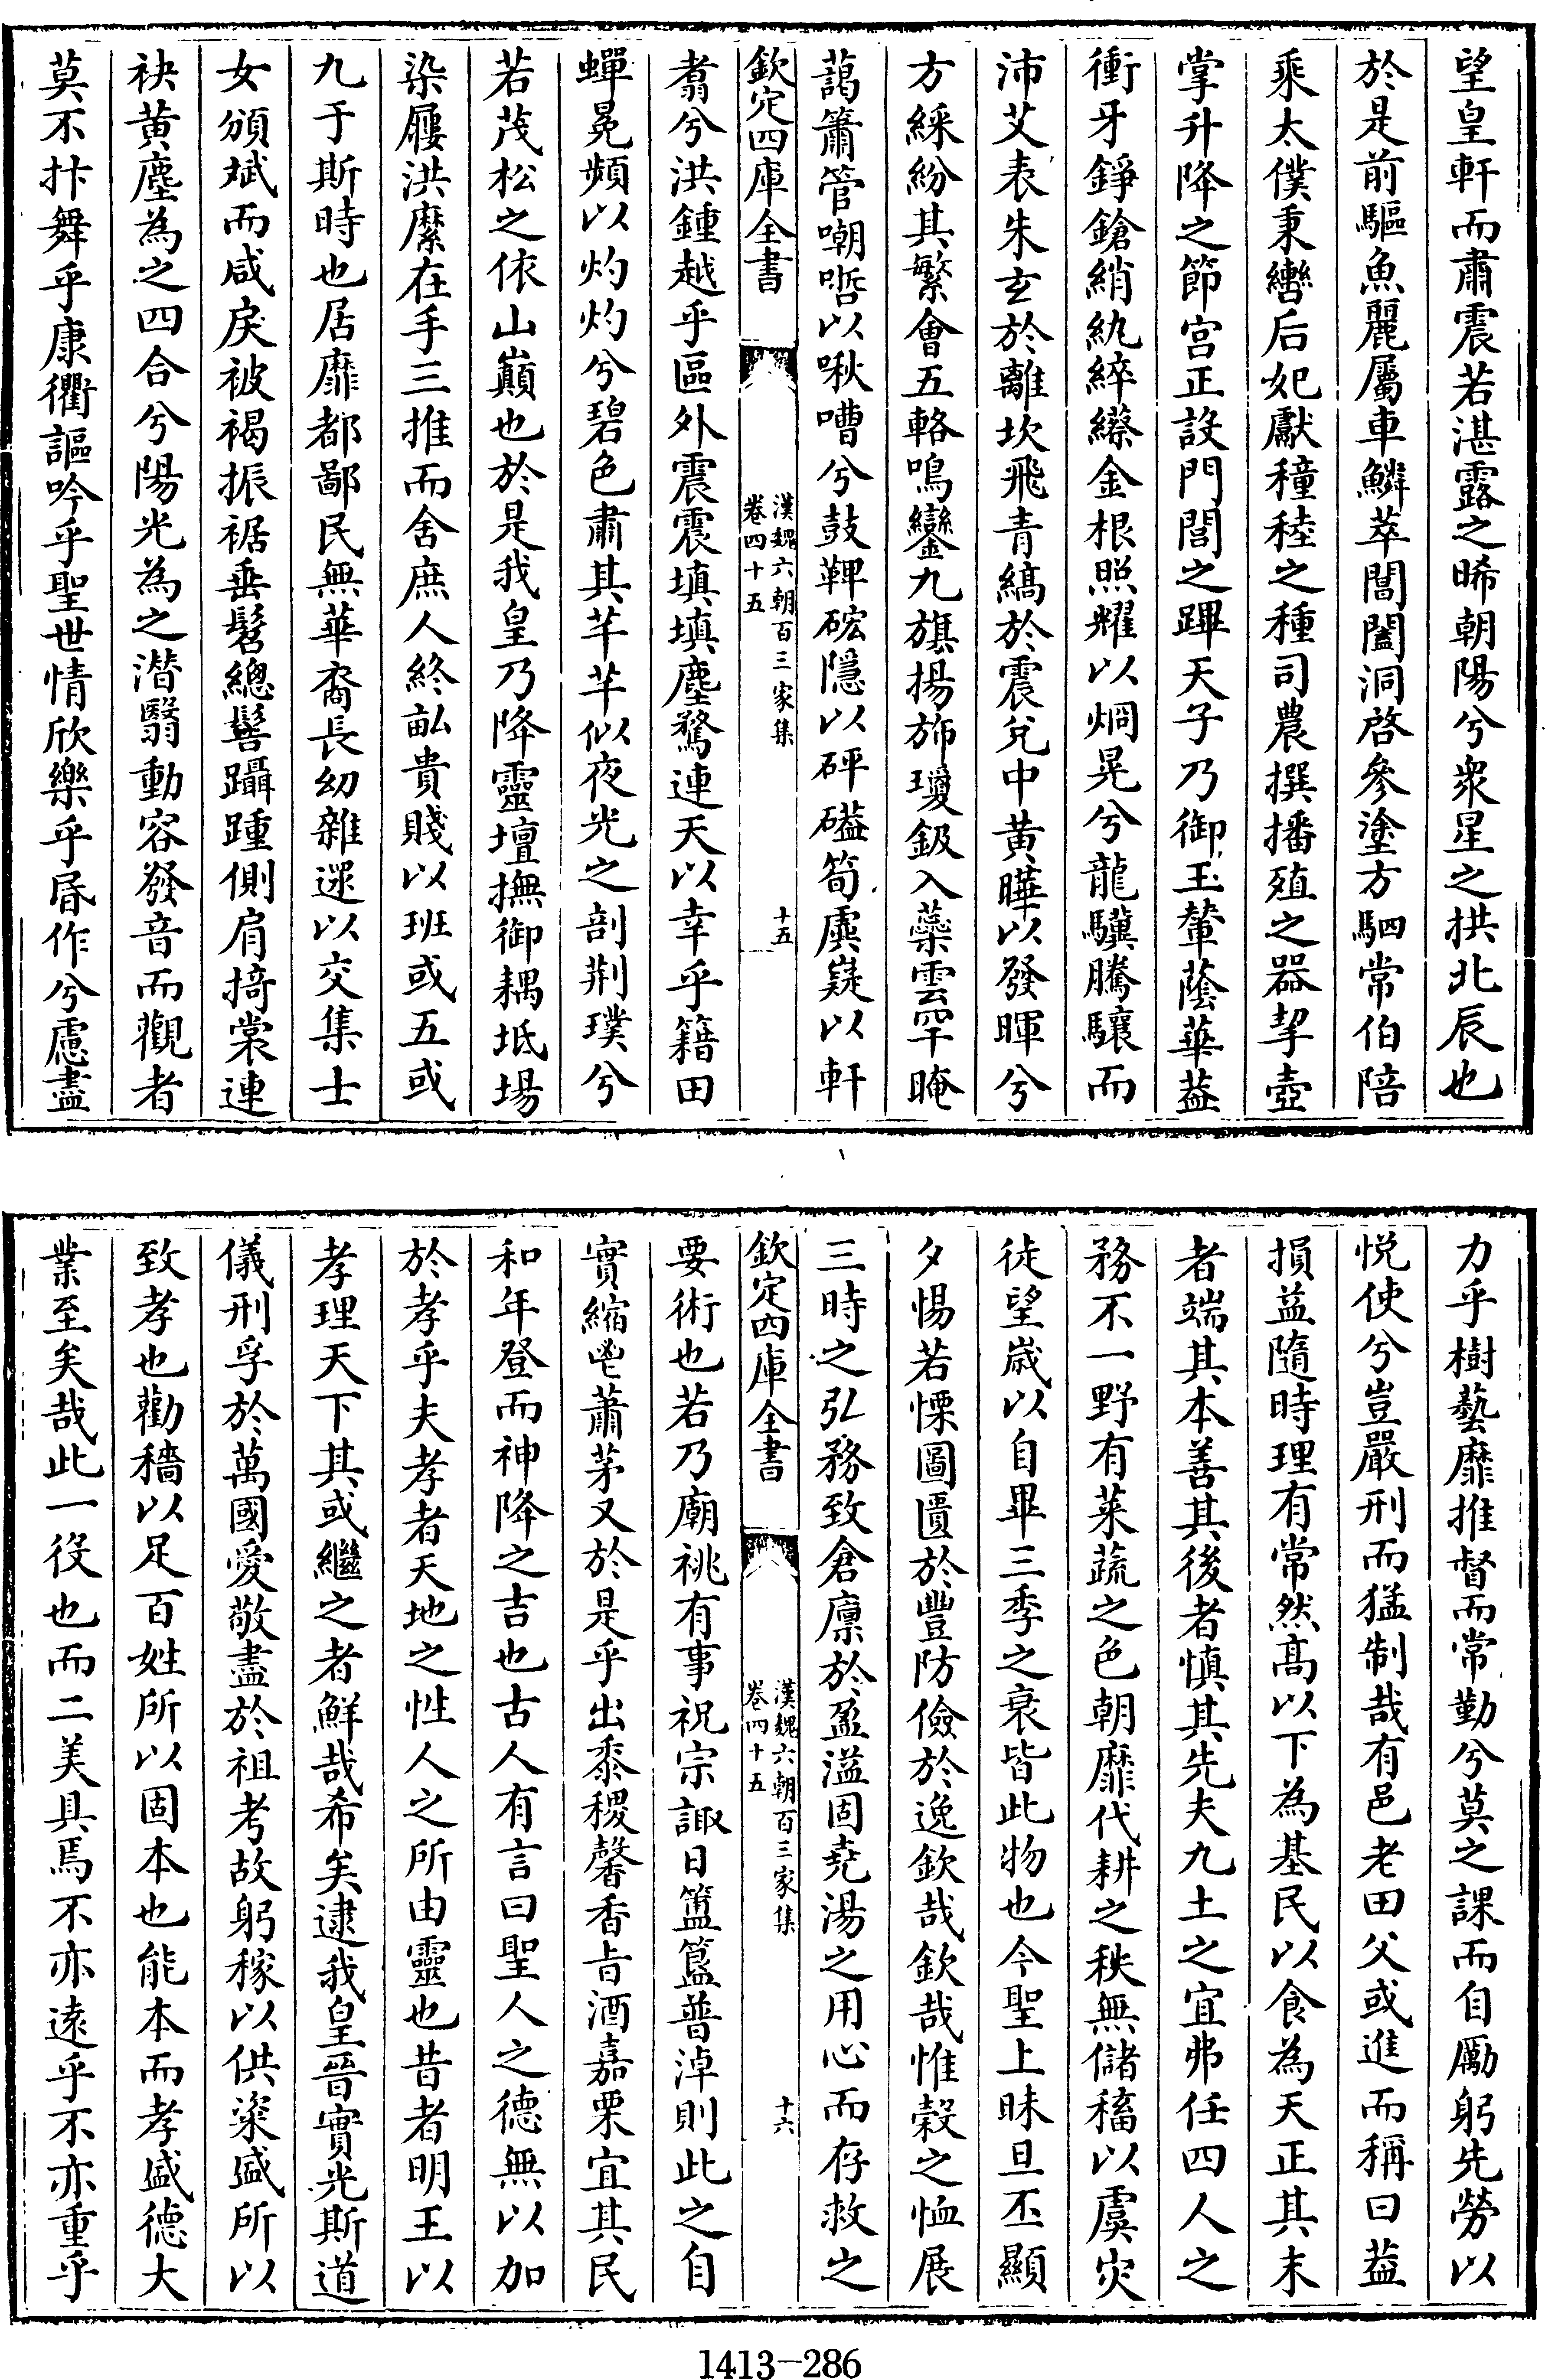 望皇軒而肅震若湛露之晞朝陽兮衆星之拱北辰也
於是前驅魚麗屬車鱗萃閶闔洞啓參塗方駟常伯陪
乘太僕秉轡后妃獻穜稑之種司農撰播殖之器挈壺
掌升降之節宫正設門閭之蹕天子乃御玉輦蔭華葢
衝牙錚鎗綃紈綷縩金根照耀以烱晃兮龍驥騰驤而
沛艾表朱玄於離坎飛青縞於震兌中黄曄以發暉兮
方綵紛其繁會五輅鳴鑾九旗揚斾瓊鈒入蘂雲罕晻
藹簫管嘲哳以啾嘈兮鼓鞞硡隱以砰磕筍虡嶷以軒
欽定四庫全書
漢魏六朝百三家集
卷四十五
十五
翥兮洪鍾越乎區外震震填填塵騖連天以幸乎籍田
蟬冕熲以灼灼兮碧色肅其芊芊似夜光之剖荆璞兮
若茂松之依山巔也於是我皇乃降靈壇撫御耦坻場
染屨洪縻在手三推而舍庶人終畝貴賤以班或五或
九于斯時也居靡都鄙民無華裔長幼雜遝以交集士
女頒斌而咸戾被褐振裾垂髫總髻躡踵側肩掎裳連
袂黄塵為之四合兮陽光為之潜翳動容發音而觀者
莫不抃舞乎康衢謳吟乎聖世情欣樂乎昏作兮慮盡
力乎樹藝靡推督而常勤兮莫之課而自厲躬先勞以
悦使兮豈嚴刑而猛制哉有邑老田父或進而稱曰葢
損益隨時理有常然髙以下為基民以食為天正其末
者端其本善其後者慎其先夫九土之宜弗任四人之
務不一野有菜蔬之色朝靡代耕之秩無儲稸以虞灾
徒望歳以自畢三季之衰皆此物也今聖上昧旦丕顯
夕惕若慄圖匱於豐防儉於逸欽哉欽哉惟榖之恤展
三時之弘務致倉廪於盈溢固堯湯之用心而存救之
欽定四庫全書
漢魏六朝百三家集
卷四十五
十六
要術也若乃廟祧有事祝宗諏日簠簋普淖則此之自
實縮鬯蕭茅又於是乎出黍稷馨香旨酒嘉栗宜其民
和年登而神降之吉也古人有言曰聖人之德無以加
於孝乎夫孝者天地之性人之所由靈也昔者明王以
孝理天下其或繼之者鮮哉希矣逮我皇晉實光斯道
儀刑孚於萬國愛敬盡於祖考故躬稼以供粢盛所以
致孝也勸穡以足百姓所以固本也能本而孝盛德大
業至矣哉此一役也而二美具焉不亦遠乎不亦重乎
1413-286